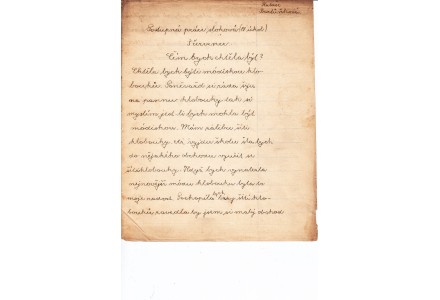 Postupná práce slohová (II úkol)
Červenec
Čím bych chtěla být?
Chtěla bych býti módistkou klo-
bouků. Poněvadž si ráda šiju
na pannu kloboučky tak si
myslím jestli bych mohla být
módistkou. Mám zálibu šíti
kloboučky. Až vyjdu školu šla bych
do nějakého obchodu vyučit se
šíti kloboučky. Když bych vynalezla
nejnovější módu klobouku byla to
moje radost. Pochopila bych šíti klo-
bouků zavedla by jsem si malý obchod